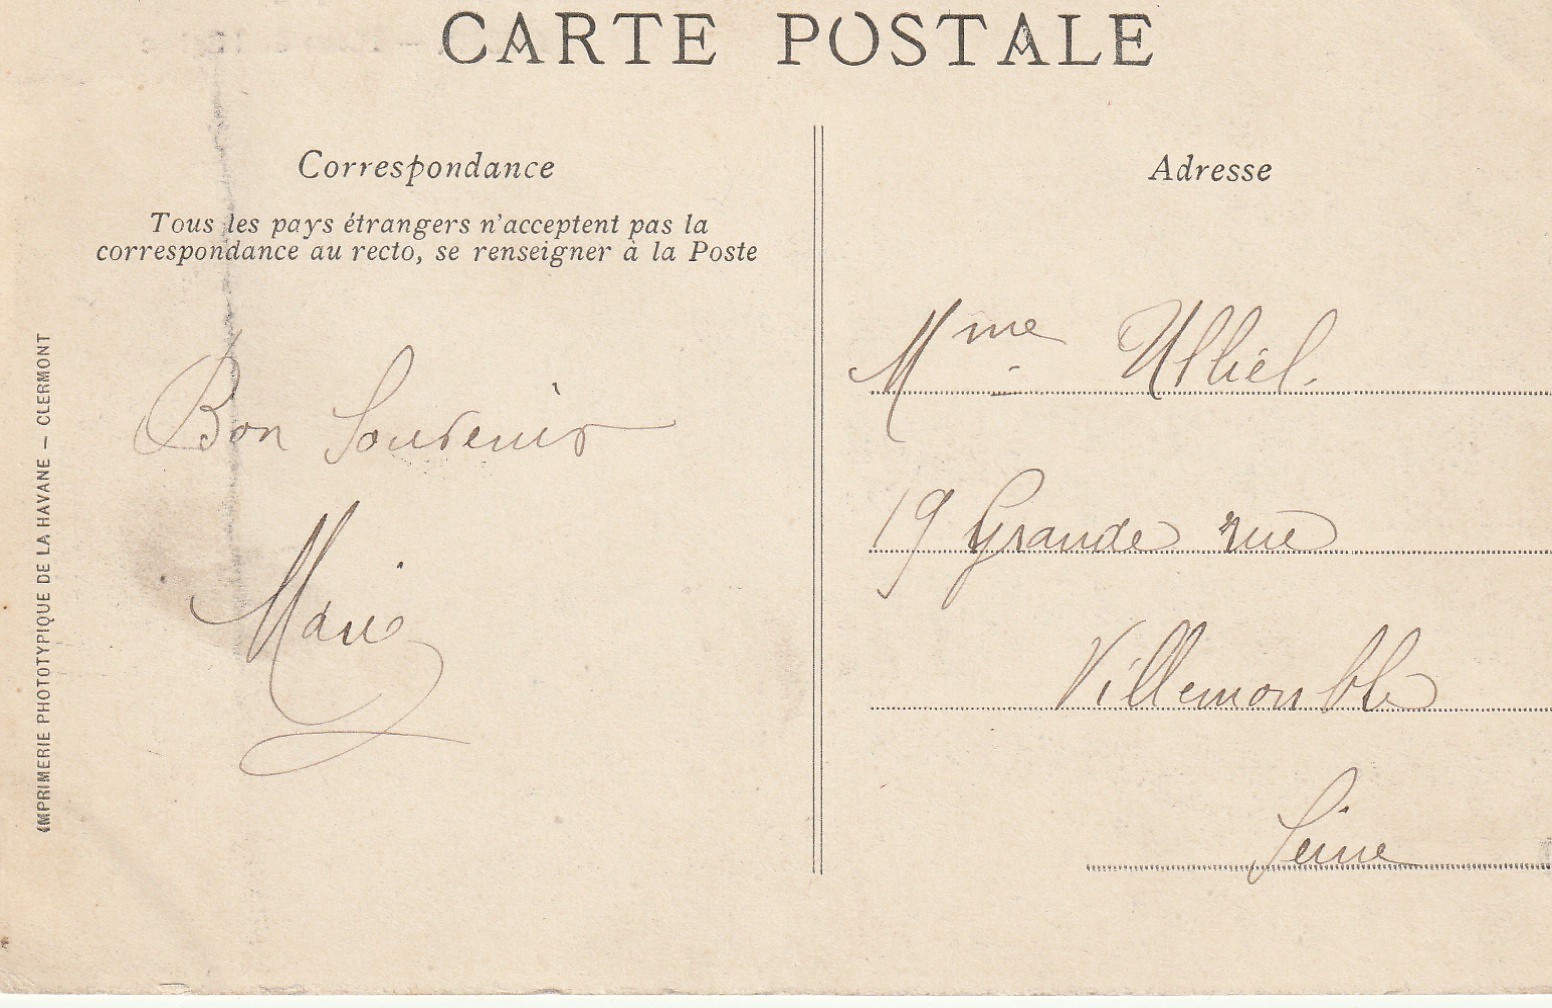 CARTE POSTALE
Correspondance
Tous les pays étrangers n'acceptent pas la
correspondance au recto, se renseigner à la Poste
Bon Souvenir
Marie
Adresse
Mme Ulliel.
19 Grande rue
Villemomble
Seine
IMPRIMERIE PHOTOTYPIQUE DE LA HAVANE — CLERMONT